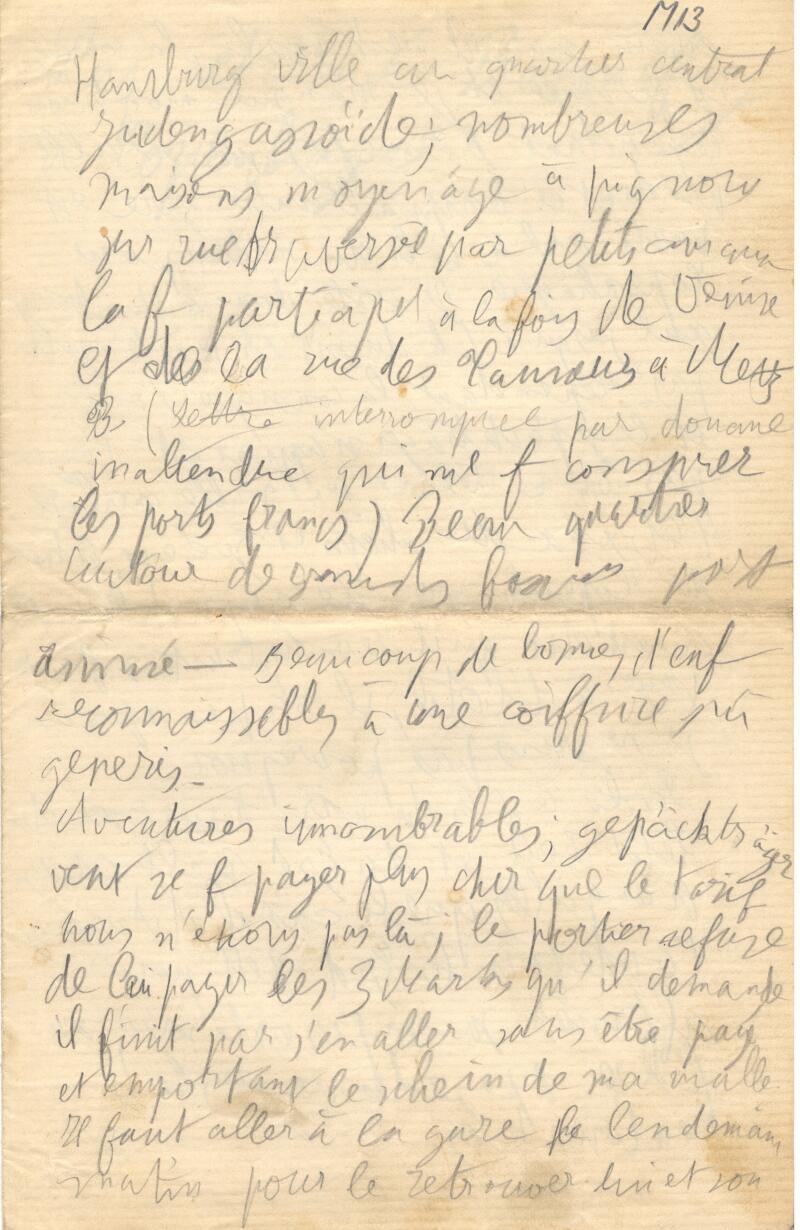 M13
Hambourg ville au quartier central
judengassoïde ; nombreuses
maisons moyenâge à pignons
sur rue traversée par petits canaux
la f participer à la fois de Venise
et de la rue des Tanneurs à Metz
B (Lettre interrompue par douane
inattendue qui me f conspuer
les ports francs) Beau quartier
autour de grands bassins port
animé — Beaucoup de bonnes d'enf
reconnaissables à une coiffure sui
generis —
Aventures innombrables ; gepäckträger
veut se f payer plus cher que le tarif
nous n'étions pas là ; le portier refuse
de lui payer les 3 Marks qu'il demande
il finit par s'en aller sans être payé
et emportant le schein de ma malle
Il faut aller à la gare le lendemain
matin pour le retrouver lui et son